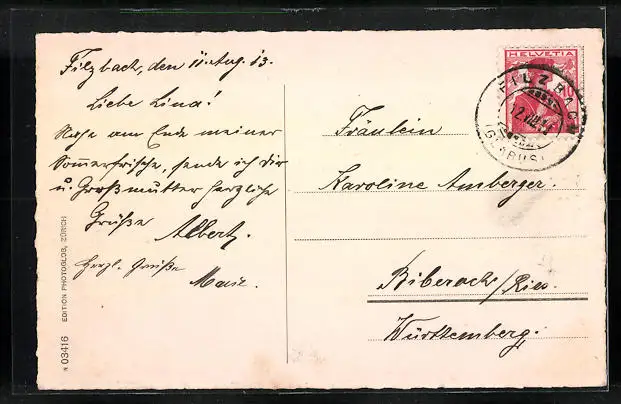 Filzbach, den 11. Aug. 13.
Liebe Lina!
Nahe am Ende meiner
Sommerfrische, sende ich dir
u. Großmutter herzliche
Grüße
Albert.
Herzl. Grüße
Marie.
HELVETIA
10
FILZBACH
(GLARUS)
Fräulein
Karoline Amberger.
Biberach/Riss.
Württemberg.
EDITION PHOTOGLOB, ZÜRICH
N 03416